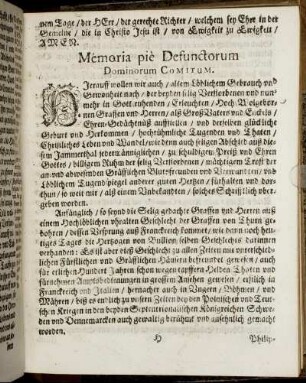 nem Tage / der HErr / der gerechte Richter / welchem sey Ehre in der
Gemeine / die in Christo Jesu ist / von Ewigkeit zu Ewigkeit /
AMEN.
Memoria piè Defunctorum
Dominorum COMITUM.
Hierauff wollen wir auch / altem Löblichem Gebrauch und
Gewonheit nach / der beyden selig Verstorbenen und nun-
mehr in Gott ruhenden / Erleuchten / Hoch-Wolgebor-
nen Graffen und Herren / alß Groß Vaters und Enckels /
Ehren-Gedächtnüß anstellen / und deroselben gnädliche
Geburt und Herkommen / hochrühmliche Tugenden und Thaten /
Christliches Leben und Wandel wie denn auch seligen Abschied auß die-
sem Jammerthal jedermänniglichen / zu schuldigem Preiß und Ehren
Gottes / billigem Ruhm der selig Verstorbenen / mächtigem Trost der
an- und abwesenden Gräfflichen Blutsfreunden und Verwandten / und
Löblichem Tugendspiegel anderer guten Hertzen / fürhalten und dar-
thun / so weit mir / alß einem Unbekandten / solches Schrifftlich über-
geben worden.
Anfänglich / so seynd die Selig gedachte Graffen und Herren auß
einem Hochlöblichen uhralten Geschlecht der Graffen von Thurn ge-
bohren / dessen Ursprung auß Franckreich kommet / wie denn noch heu-
tiges Tages die Hertzogen von Bullion selben Geschlechts daraussen
verhanden: Es ist aber diß Geschlecht zu allen Zeiten mit unterschiedli-
chen Fürstlichen und Gräfflichen Häusern befreundet gewesen / auch
für etlichen Hundert Jahren schon wegen tapffern Helden Thaten und
fürnehmen Amptsbedienungen in grossem Ansehen gewesen / erstlich in
Franckreich und Italien / hernacher auch in Ungern / Böhmen / und
Mähren / biß es endlich zu unsern Zeiten bey den Polnischen und Teut-
schen Kriegen in den beyden Septentrionalischen Königreichen Schwe-
den und Dennemarcken auch gewaltig berühmt und ansehnlich gemacht
worden.
H
Philip-